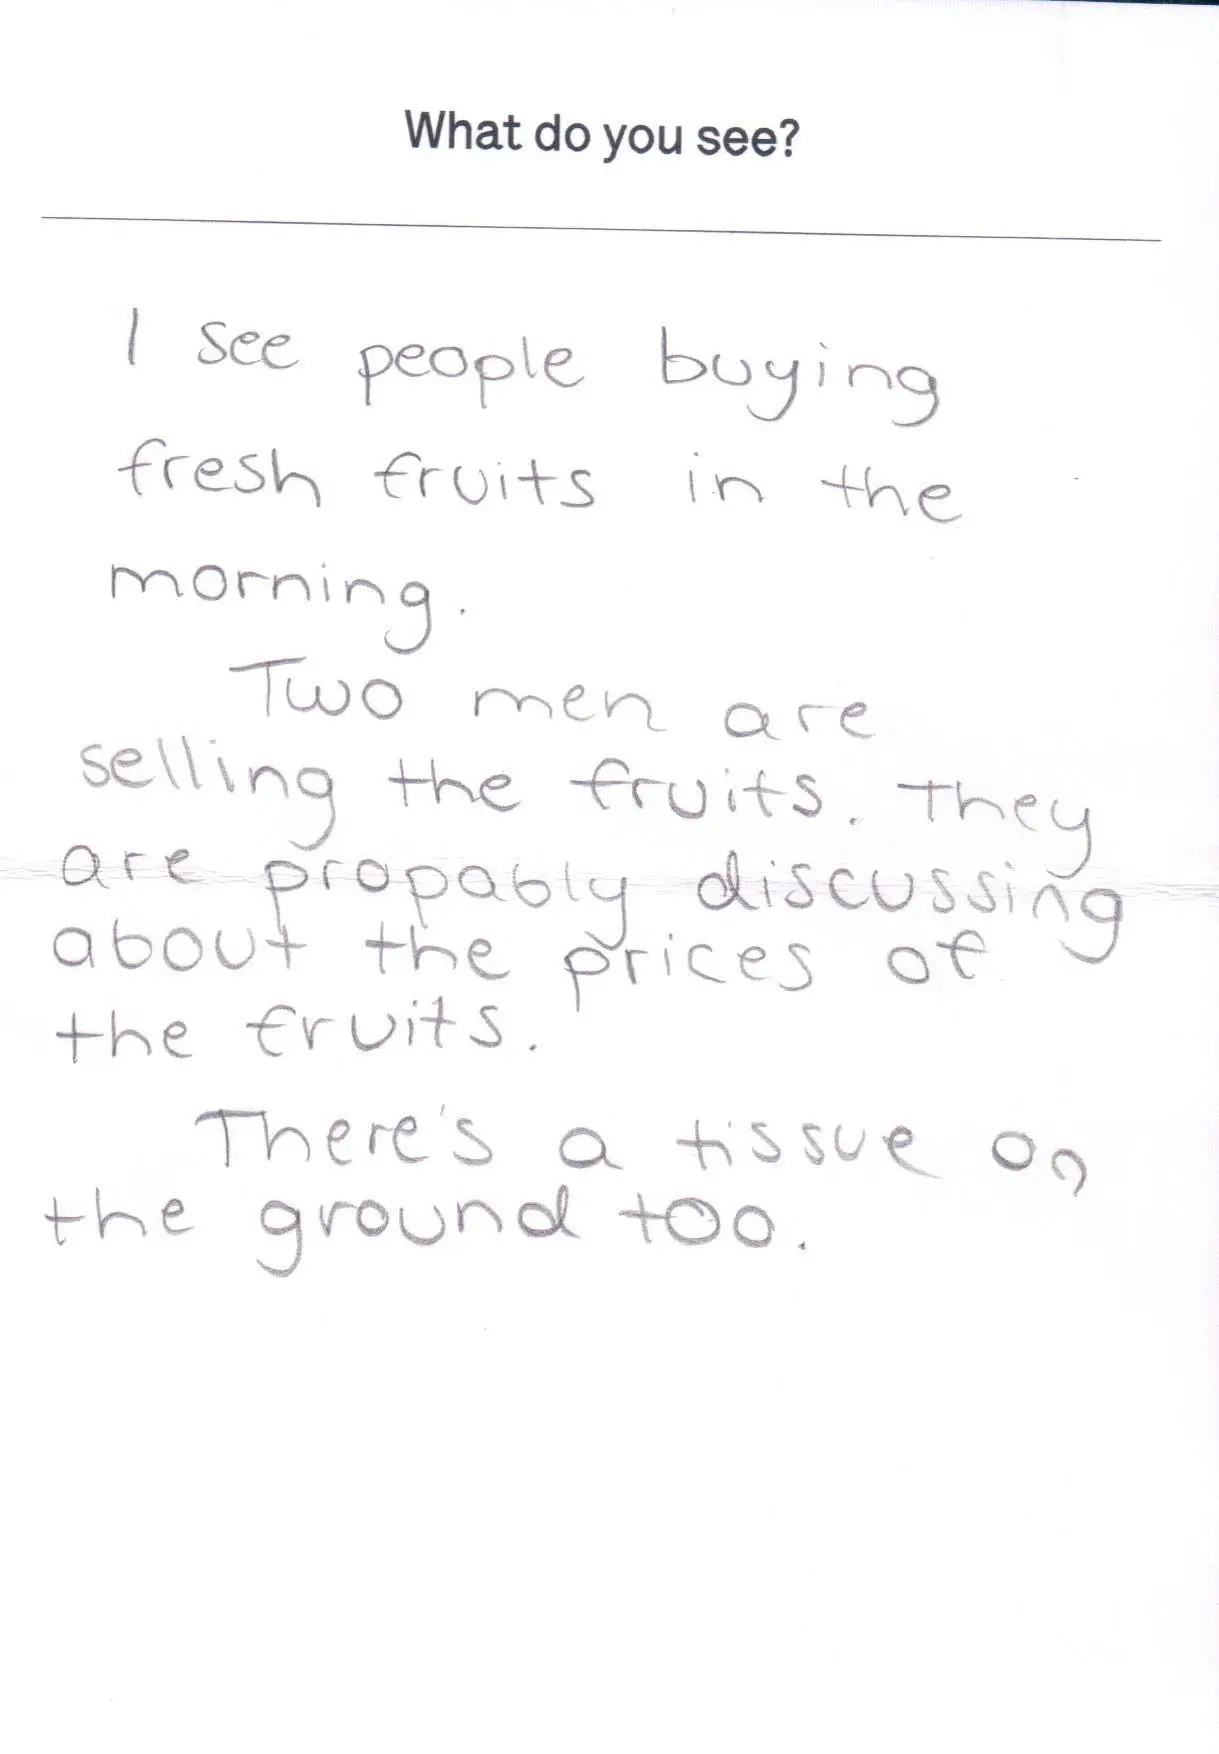 What do you see?
I see people buying
fresh fruits in the
morning.
Two men are
selling the fruits. They
are propably discussing
about the prices of
the fruits.
There's a tissue on
the ground too.